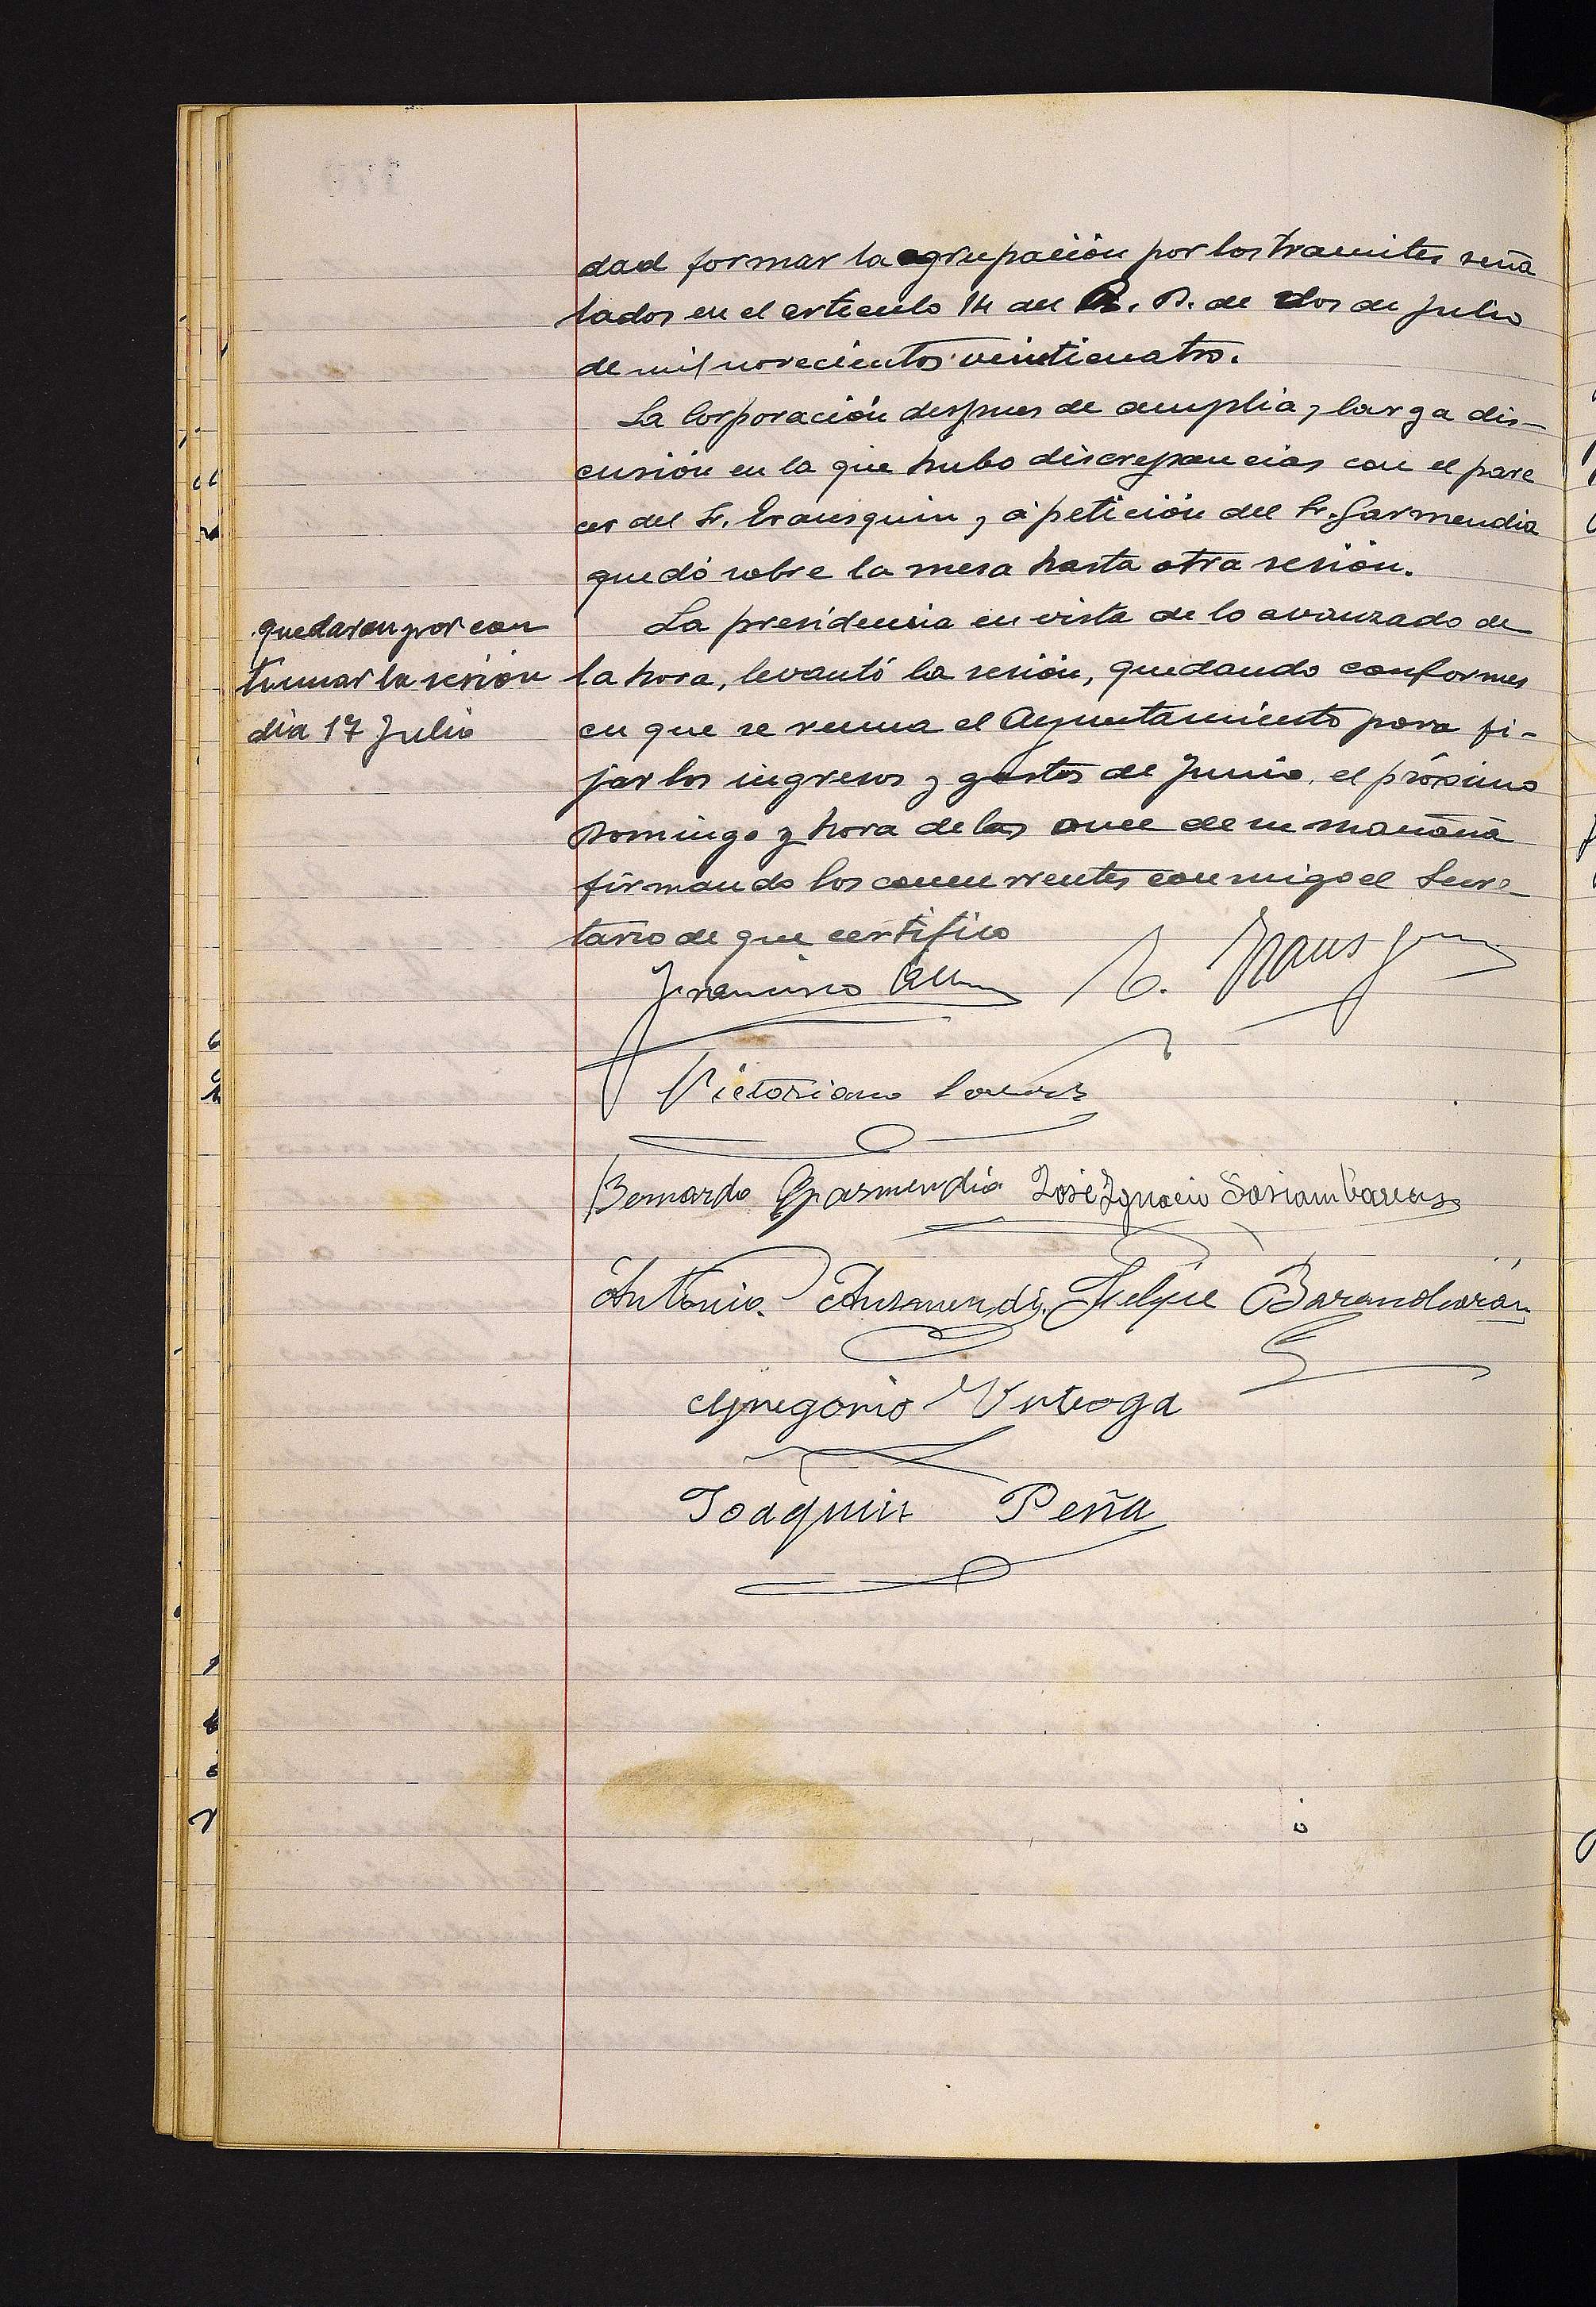 dad formar la agrupación por los tramites seña
lados en el articulo 14 del R. D. de dos de Julio
de mil novecientos veinticuatro.
La Corporación despues de amplia y larga dis-
cusión en la que hubo discrepancias con el pare
cer del Sr. Erausquin y á petición del Sr. Garmendia
quedó sobre la mesa hasta otra sesión.
quedaron por con
tinuar la sesión
dia 17 Julio
La presidencia en vista de lo avanzado de
la hora, levantó la sesión, quedando conformes
en que se reuna el Ayuntamiento para fi-
jar los ingresos y gastos de Junio, el próximo
Domingo y hora de las once de su mañana
firmando los concurrentes conmigo el Secre-
tario de que certifico
Francisco
Victoriano
Bernardo Garmendia José Ignacio
Antonio Auzmendi Felipe Barandiarán
Gregorio Urteaga
Joaquin Peña